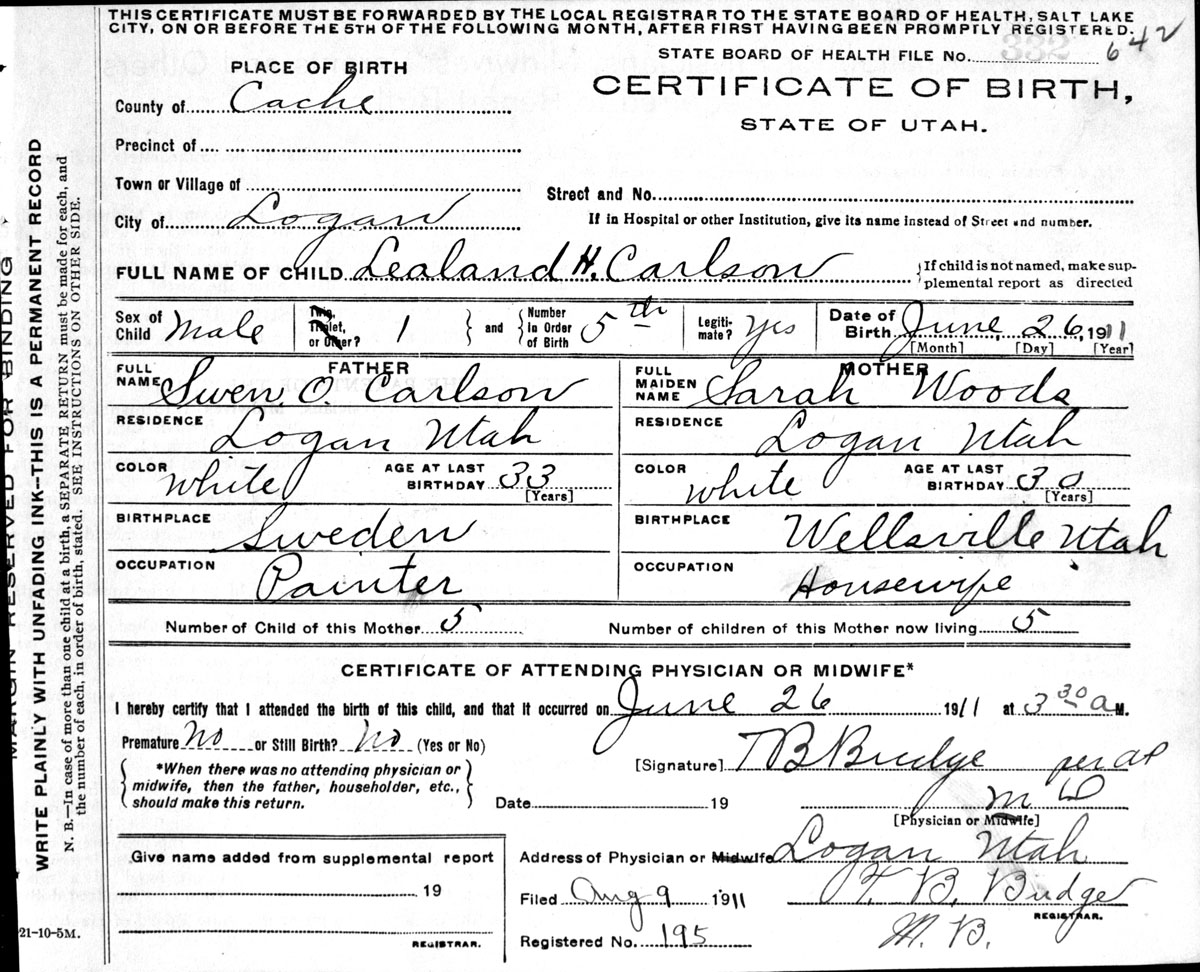 THIS CERTIFICATE MUST BE FORWARDED BY THE LOCAL REGISTRAR TO THE STATE BOARD OF HEALTH, SALT LAKE
CITY, ON OR BEFORE THE 5TH OF THE FOLLOWING MONTH, AFTER FIRST HAVING BEEN PROMPTLY REGISTERED.
STATE BOARD OF HEALTH FILE No. 332 642
PLACE OF BIRTH
CERTIFICATE OF BIRTH,
STATE OF UTAH.
County of Cache
Precinct of
Town or Village of
Street and No.
City of Logan
If in Hospital or other Institution, give its name instead of Street and number.
FULL NAME OF CHILD Lealand H. Carlson {If child is not named, make sup-
plemental report as directed
Sex of Child Male Twin, Triplet, or Other? 1 } and { Number in Order of Birth 5th Legiti-mate? Yes Date of Birth June 26, 1911
[Month] [Day] [Year]
FATHER MOTHER
FULL NAME Swen O. Carlson FULL MAIDEN NAME Sarah Woods
RESIDENCE Logan Utah RESIDENCE Logan Utah
COLOR White AGE AT LAST BIRTHDAY 33 [Years] COLOR White AGE AT LAST BIRTHDAY 30 [Years]
BIRTHPLACE Sweden BIRTHPLACE Wellsville Utah
OCCUPATION Painter OCCUPATION Housewife
Number of Child of this Mother 5 Number of children of this Mother now living 5
CERTIFICATE OF ATTENDING PHYSICIAN OR MIDWIFE*
I hereby certify that I attended the birth of this child, and that it occurred on June 26 1911 at 3 30 a M.
Premature No or Still Birth? No (Yes or No)
*When there was no attending physician or
midwife, then the father, householder, etc.,
should make this return.
[Signature] T B Budge per
Date 19 M D
[Physician or Midwife]
Give name added from supplemental report
19
REGISTRAR.
Address of Physician or Midwife Logan Utah
Filed Aug 9 1911 T. B. Budge
REGISTRAR.
Registered No. 195 M. B.
21-10-5M.
MARGIN RESERVED FOR BINDING
WRITE PLAINLY WITH UNFADING INK--THIS IS A PERMANENT RECORD
N. B.—In case of more than one child at a birth, a SEPARATE RETURN must be made for each, and
the number of each, in order of birth, stated. SEE INSTRUCTIONS ON OTHER SIDE.